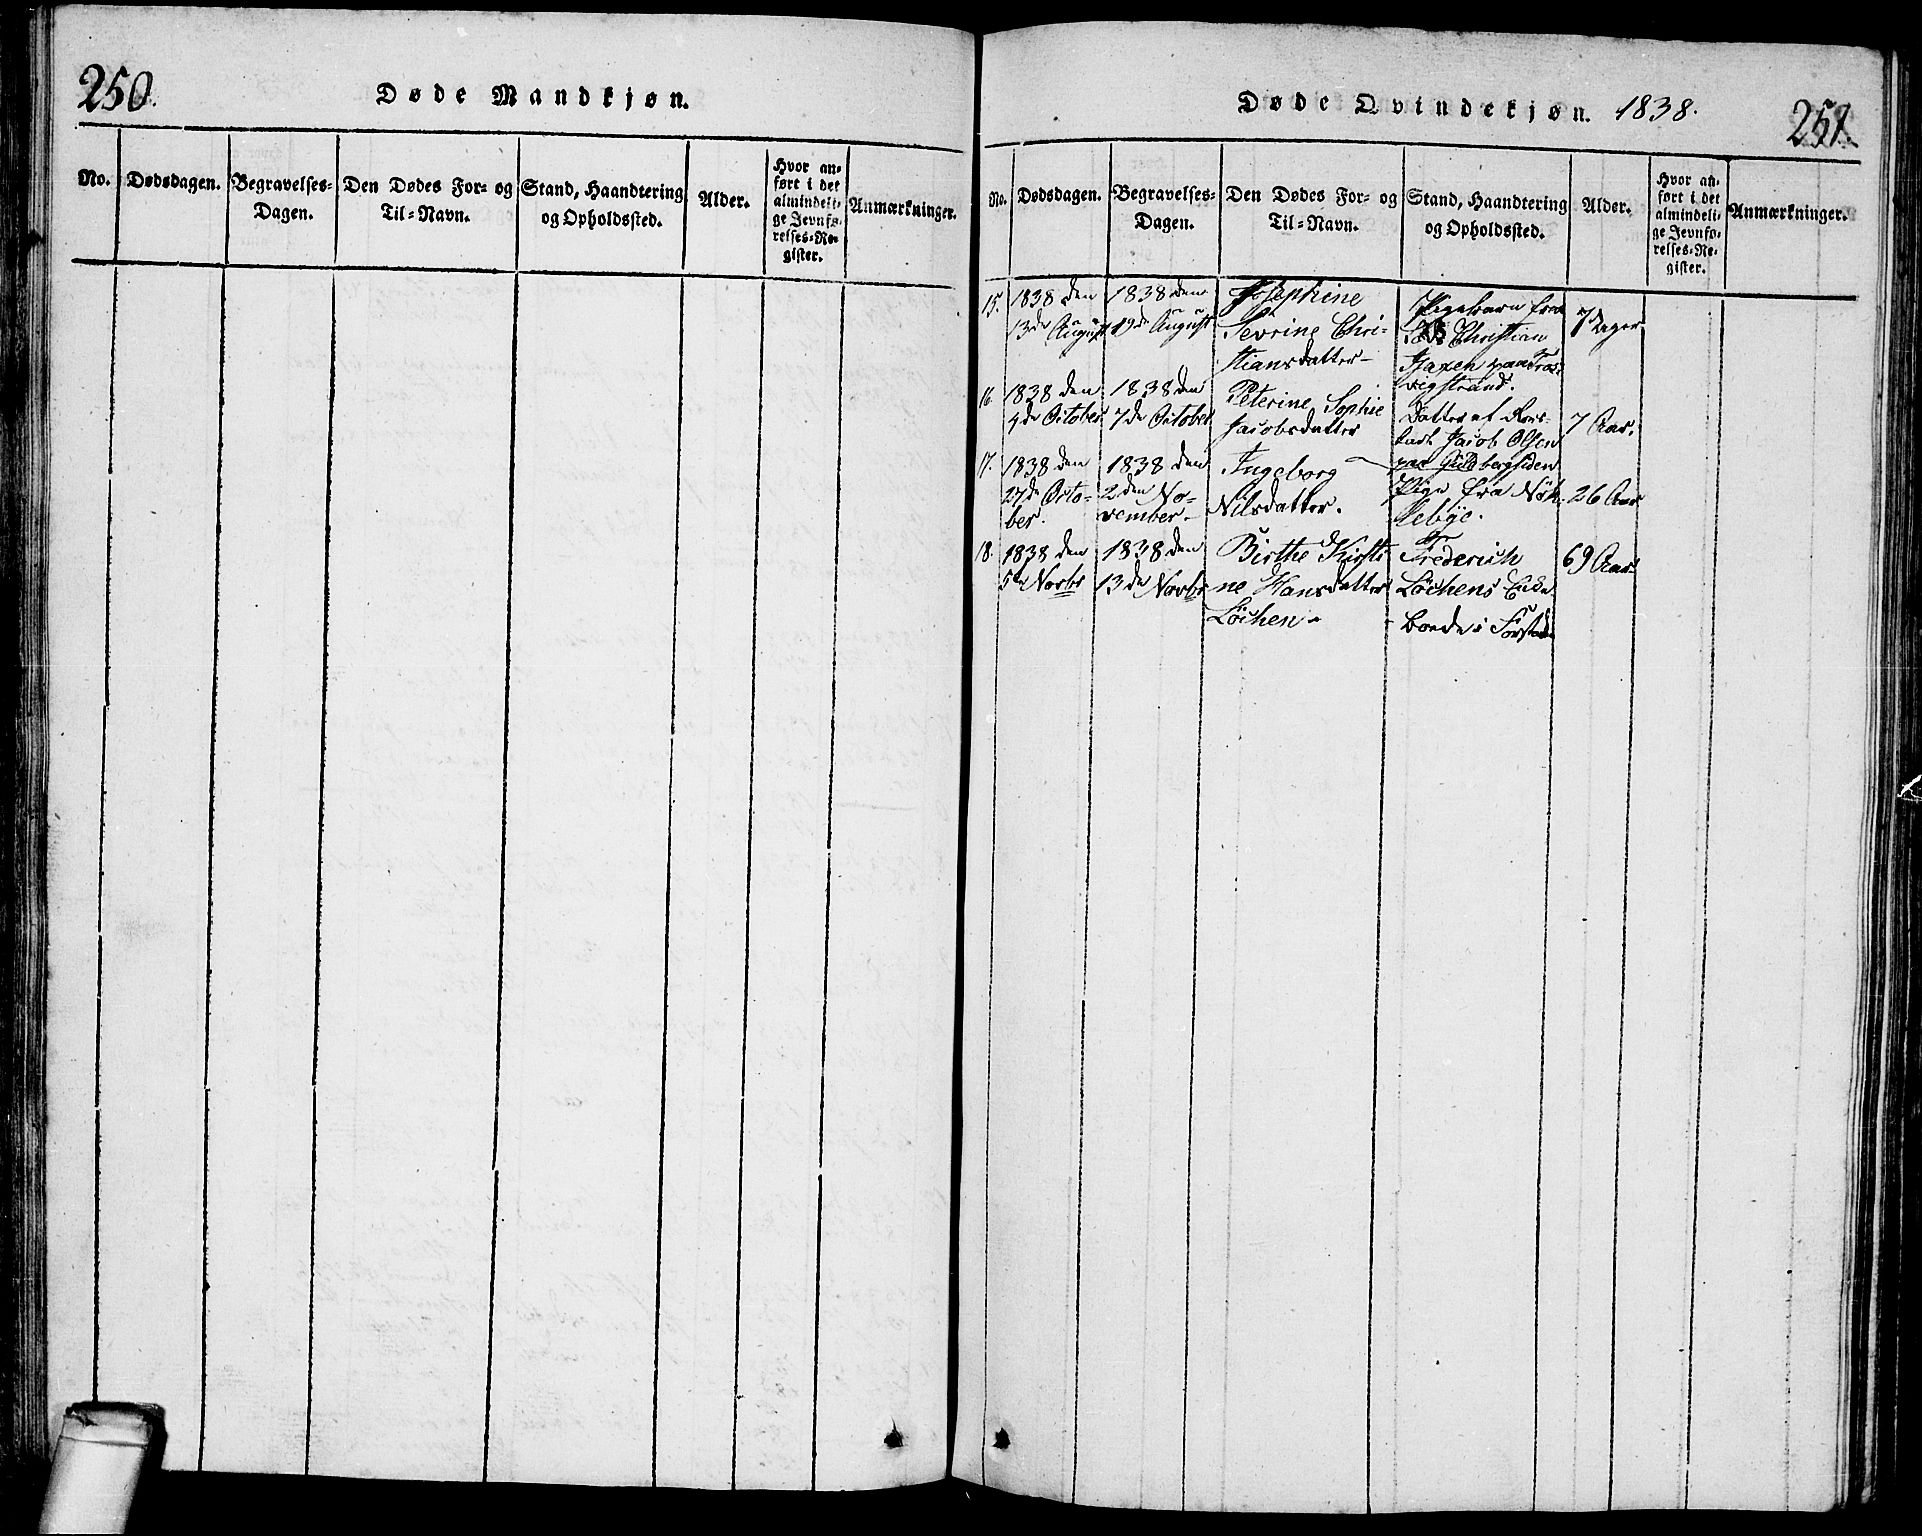 250.
Døde Mandkjøn.
No.
Dødsdagen.
Begravelses-
Dagen.
Den Dødes For- og
Til-Navn.
Stand, Haandtering
og Opholdssted.
Alder.
Hvor an-
ført i det
almindeli-
ge Jevnfø-
relses-Re-
gister.
Anmærkninger.
Døde Qvindekjøn. 1838.
251.
No.
Dødsdagen.
Begravelses-
Dagen.
Den Dødes For- og
Til-Navn.
Stand, Haandtering
og Opholdssted.
Alder.
Hvor an-
ført i det
almindeli-
ge Jevnfø-
relses-Re-
gister.
Anmærkninger.
15.
1838 den
13de August
1838 den
19de August
Josephine
Sevrine Chri-
stiansdatter
Pigebarn fra
Christian
Isaxen paa
vigstrand.
7 Dager
16.
1838 den
4de October
1838 den
7de October
Peterine Sophie
Jacobsdatter
Datter af
Jacob Olsen
paa Guldbergsiden
7 Aar.
17.
1838 den
27de Octo-
ber.
1838 den
2den No-
vember
Ingeborg
Nilsdatter.
Pige fra Nøk-
lebye.
26 Aar
18.
1838 den
5te Novbr
1838 den
13de Novbr
Birthe Kirsti-
ne Hansdatter
Löchen
Frederich
Löchens Enke
boende i Forstaden
69 Aar